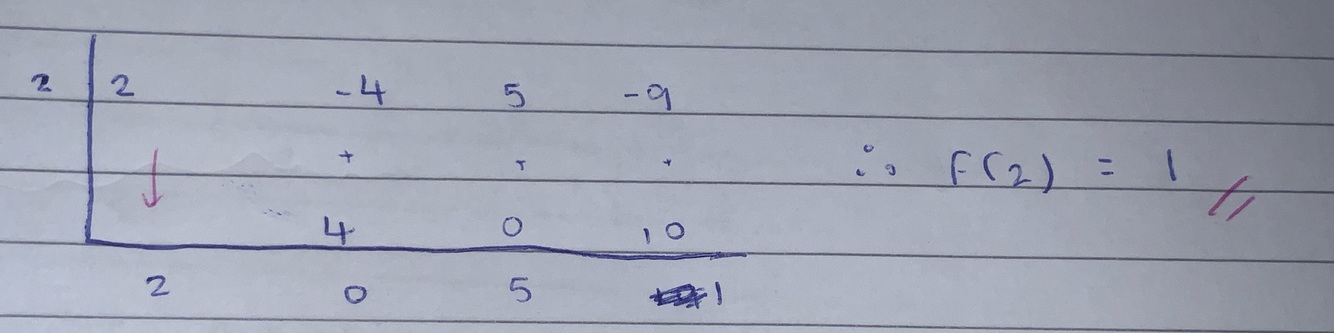 2 | 2 -4 5 -9
↓ + + + ∴ F(2) = 1 //
4 0 10
2 0 5 1